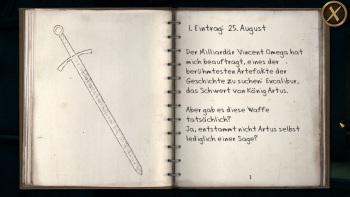 1. Eintrag: 25. August
Der Milliardär Vincent Omega hat
mich beauftragt, eines der
berühmtesten Artefakte der
Geschichte zu suchen: Excalibur,
das Schwert von König Artus.
Aber gab es diese Waffe
tatsächlich?
Ja, entstammt nicht Artus selbst
lediglich einer Sage?
1